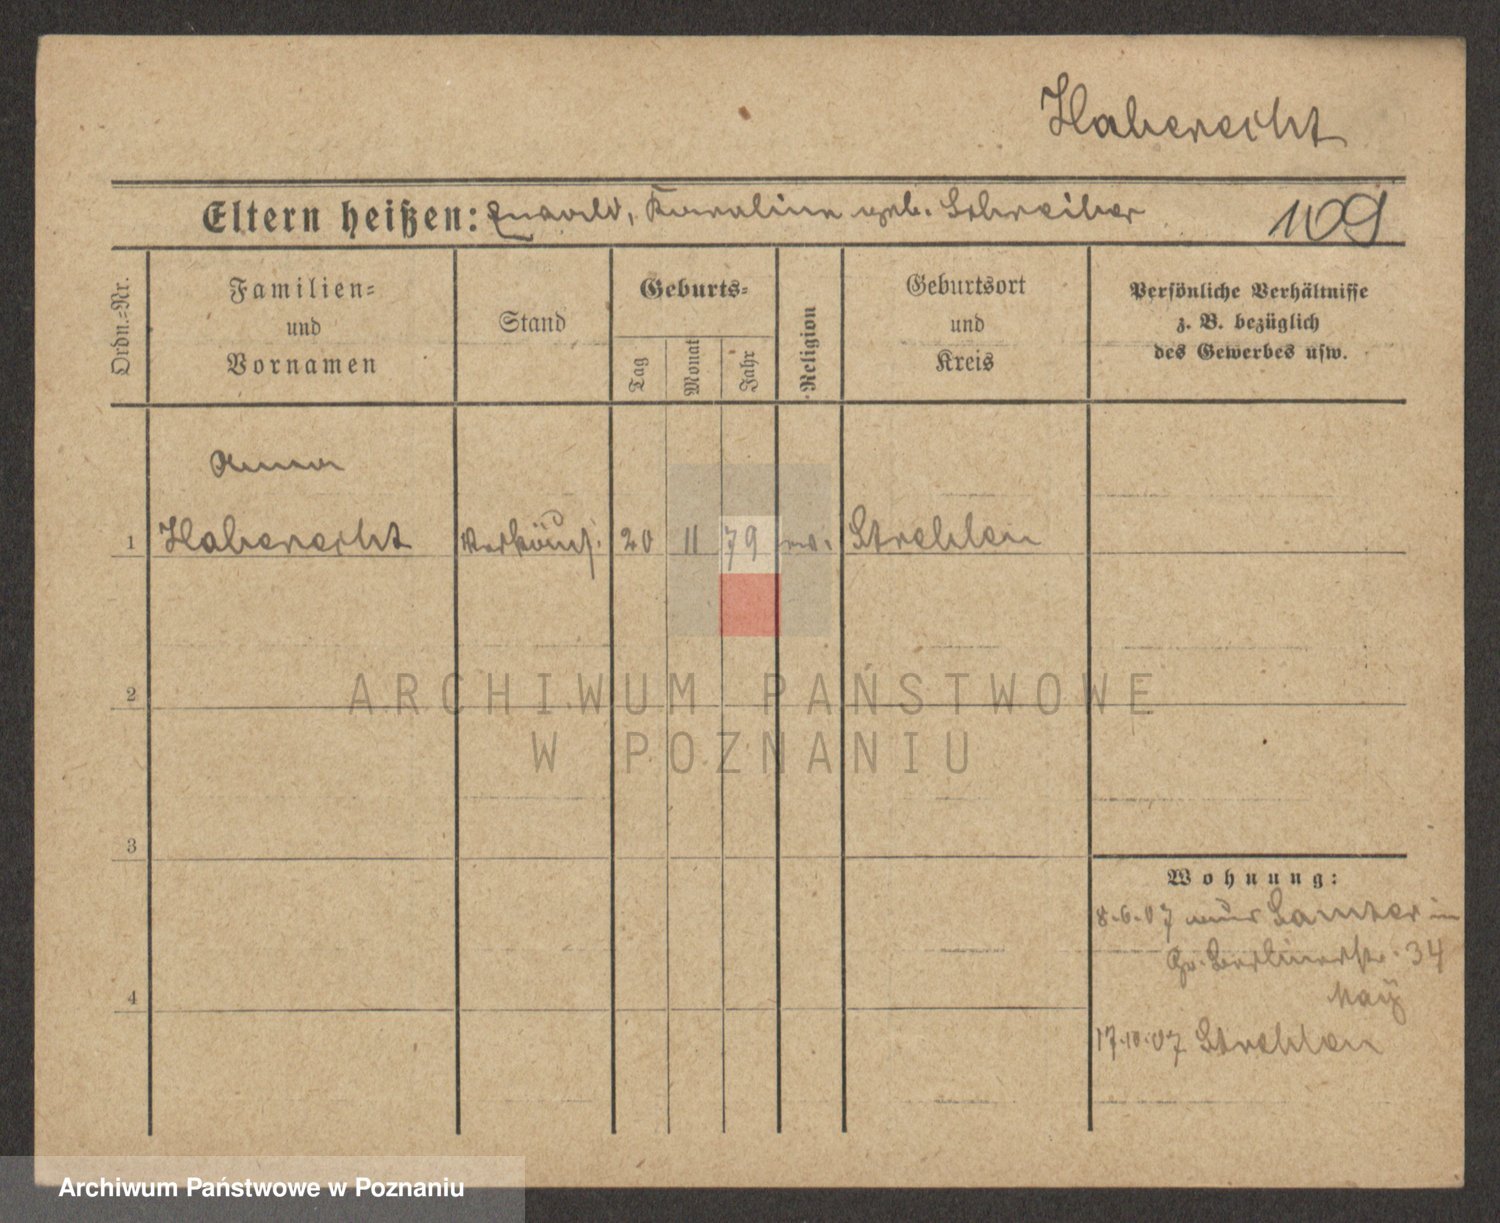 Haberecht
Eltern heißen: Ewald, Karoline geb. Schreiber 109
Ordn.=Nr.
Familien=
und
Vornamen
Stand
Geburts=
Tag
Monat
Jahr
Religion
Geburtsort
und
Kreis
Persönliche Verhältnisse
z. B. bezüglich
des Gewerbes usw.
Anna
1 Haberecht Verkäuf. 20 11 79 ev. Strehlen
2
ARCHIWUM PAŃSTWOWE
W POZNANIU
3
Wohnung:
8.6.07 aus Samter in
Gr. Berlinerstr. 34
17.10.07 Strehlen
4
Archiwum Państwowe w Poznaniu